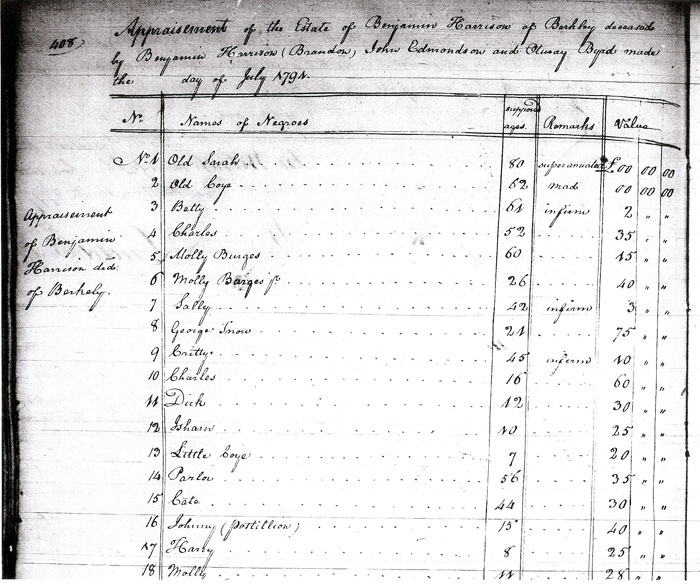 408
Appraisement of the Estate of Benjamin Harrison of Berkley deceased
by Benjamin Harrison (Brandon) John Edmondson and Otway Byrd made
the day of July 1791.
No. Names of Negroes suppos'd ages. Remarks Value
No. 1 Old Sarah 80 superanuated £ 00 00 00
2 Old Coye 62 mad 00 00 00
3 Betty 61 infirm 2 " "
4 Charles 52 35 " "
5 Molly Burges 60 15 " "
6 Molly Burges Jr 26 40 " "
7 Sally 42 infirm 3 " "
8 George Snow 21 75 " "
9 Critty 45 infirm 10 " "
10 Charles 16 60 " "
11 Dick 12 30 " "
12 Isham 10 25 " "
13 Little Coye 7 20 " "
14 Parlor 56 35 " "
15 Cate 44 30 " "
16 Johnny (postillion) 15 40 " "
17 Harry 8 25 " "
18 Molly 11 28 " "
Appraisement
of Benjamin
Harrison dcd.
of Berkely.